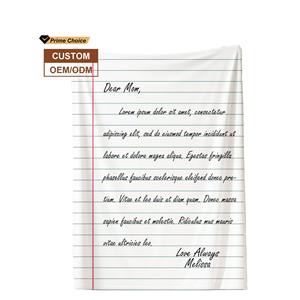 Prime Choice
CUSTOM
OEM/ODM
Dear Mom,
Lorem ipsum dolor sit amet, consectetur
adipiscing elit, sed do eiusmod tempor incididunt ut
labore et dolore magna aliqua. Egestas fringilla
phasellus faucibus scelerisque eleifend donec pre-
tium. Vitae et leo duis ut diam quam. Donec massa
sapien faucibus et molestie. Ridiculus mus mauris
vitae ultricies leo.
Love Always
Melissa